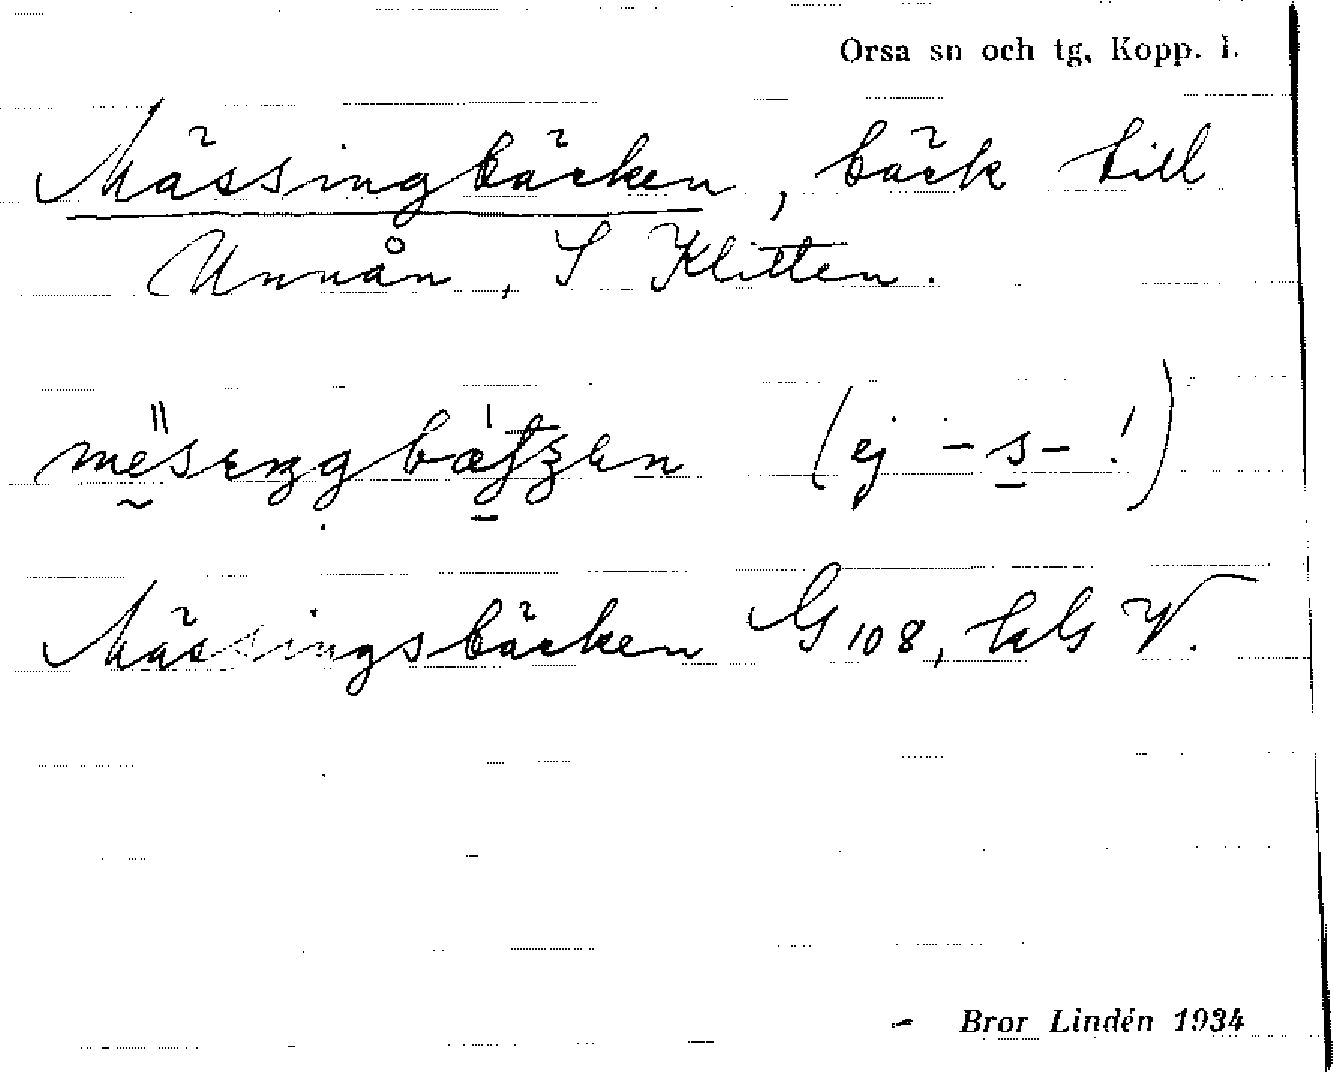 Orsa sn och tg, Kopp. l.
Mässingbäcken, bäck till
Unnån, S Klitten.
(ej -s-!)
Mässingsbäcken G 108, hLG V.
- Bror Lindén 1934